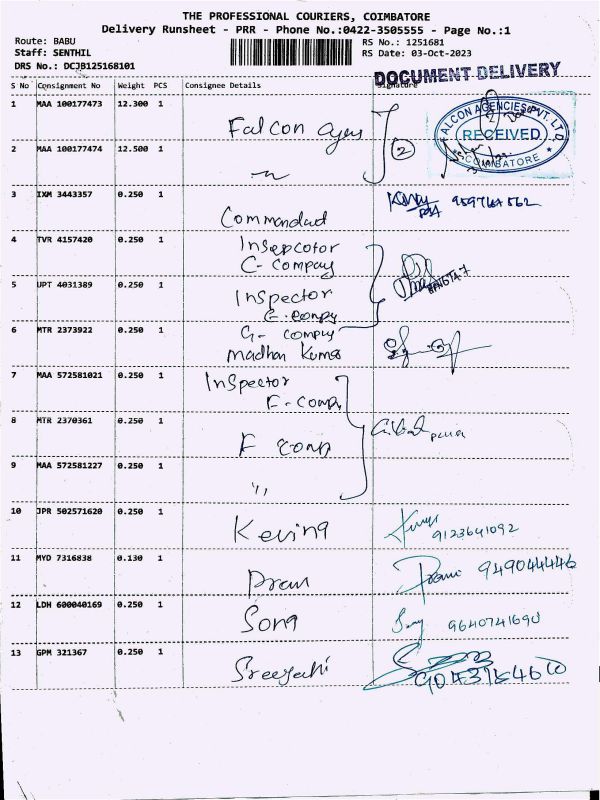 THE PROFESSIONAL COURIERS, COIMBATORE
Delivery Runsheet - PRR - Phone No.:0422-3505555 - Page No.:1
Route: BABU
RS No.: 1251681
Staff: SENTHIL
RS Date: 03-Oct-2023
DRS No.: DCJB125168101
DOCUMENT DELIVERY
S No Consignment No Weight PCS Consignee Details Signature
1 MAA 100177473 12.300 1
Falcon
2
FALCON AGENCIES PVT. LTD
RECEIVED
COIMBATORE
2 MAA 100177474 12.500 1
3 IXM 3443357 0.250 1
Commandad
4 TVR 4157420 0.250 1
Insepcotor
C- Company
5 UPT 4031389 0.250 1
Inspector
6 MTR 2373922 0.250 1
G- 
Madhan Kumar
7 MAA 572581021 0.250 1
Inspector
F- Comp
8 MTR 2370361 0.250 1
F comp
9 MAA 572581227 0.250 1
"
10 JPR 502571620 0.250 1
Kevina
9123641092
11 MYD 7316838 0.130 1
949044446
12 LDH 600040169 0.250 1
Song
13 GPM 321367 0.250 1